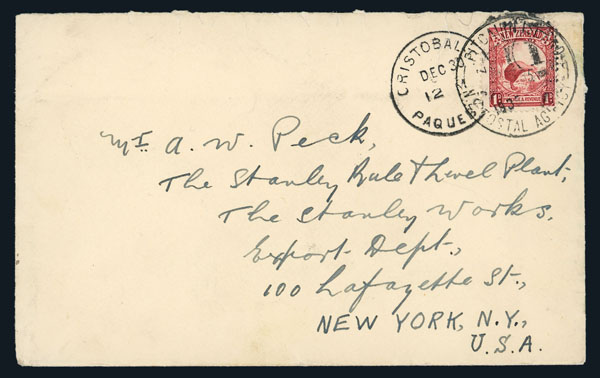 CRISTOBAL
DEC 3
12
PAQUEB
POSTAL AG
Mr. A. W. Peck,
The Stanley Rule & Level Plant,
The Stanley Works,
Export Dept.,
100 Lafayette St.,
NEW YORK, N.Y.,
U.S.A.